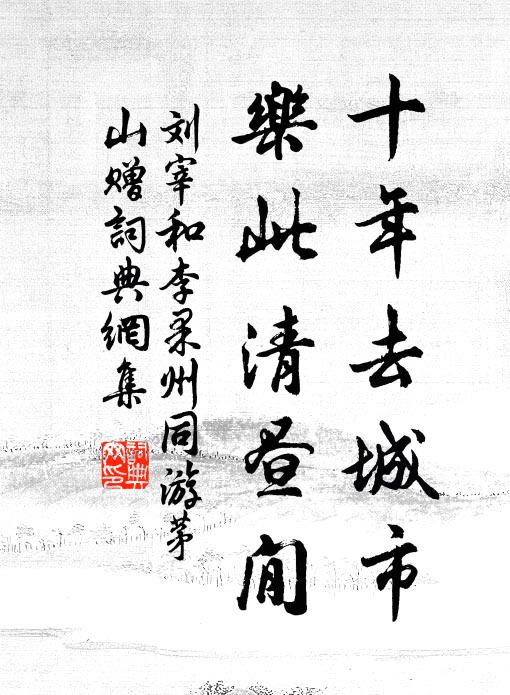 十年去城市
樂此清昼閒
刘宰和李果州同游茅
山赠詞典網集
詞典